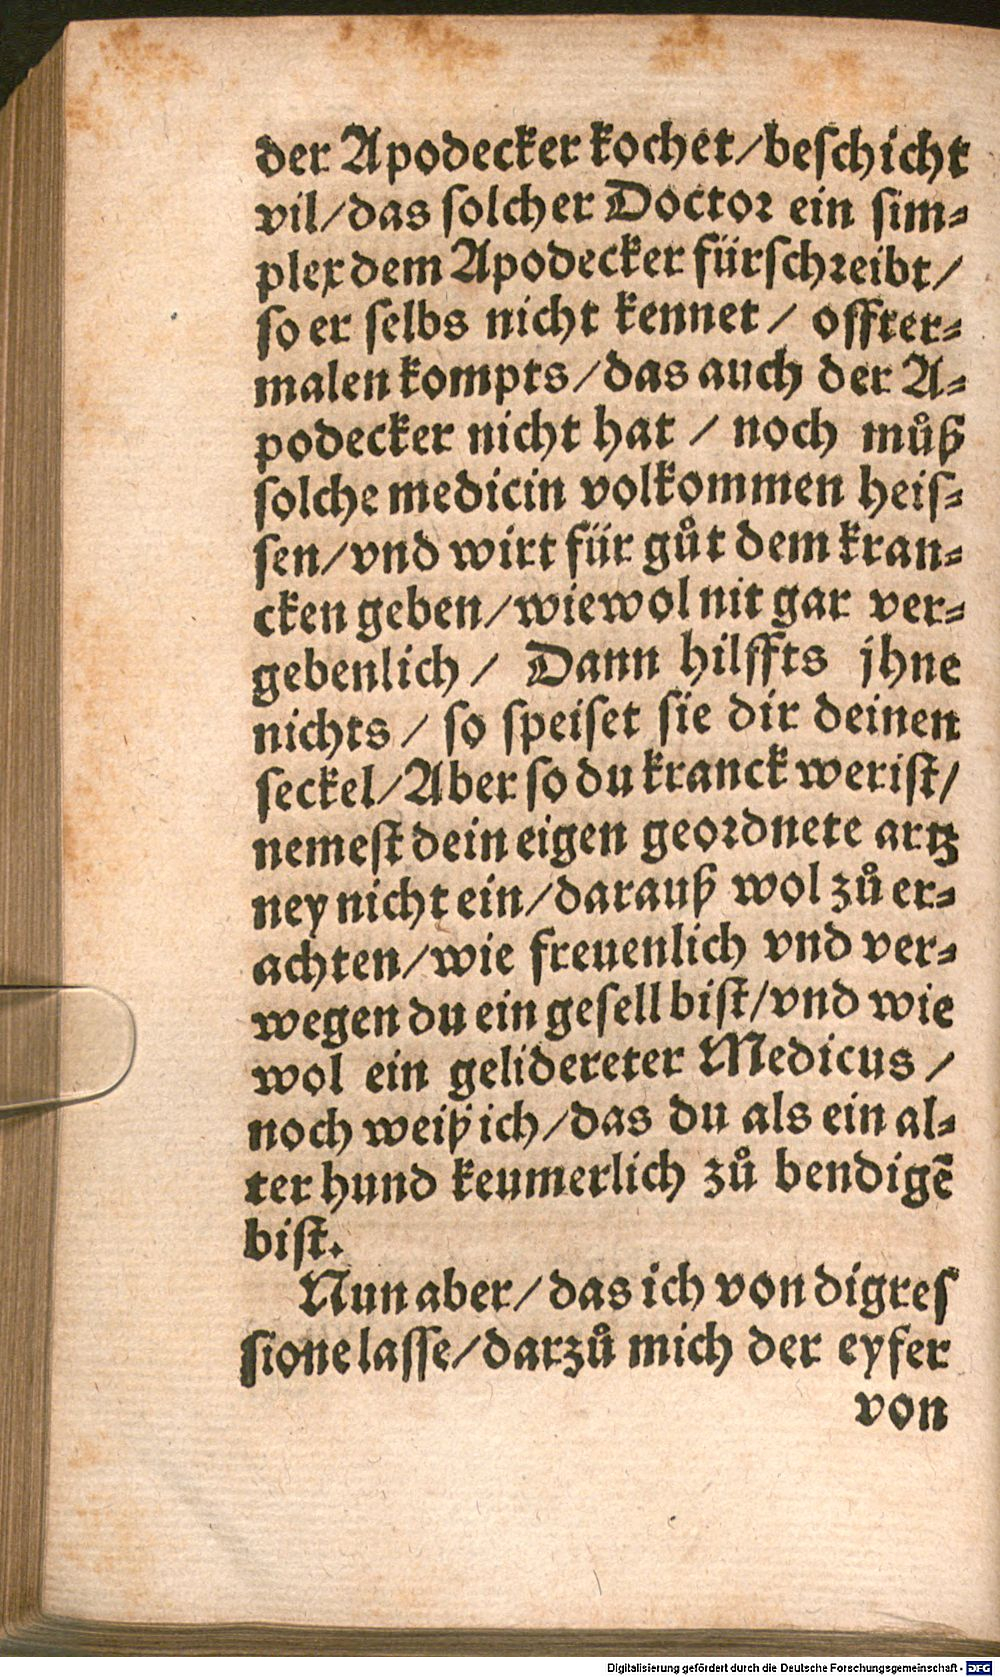 der Apodecker kochet/beſchicht
vil/das ſolcher Doctoꝛ ein ſim⸗
plex dem Apodecker fürſchꝛeibt/
ſo er ſelbs nicht kennet/ offter⸗
malen kompts/das auch der A⸗
podecker nicht hat / noch můß
ſolche medicin volkommen heiſ⸗
ſen/vnd wirt für gůt dem kran⸗
cken geben/wiewol nit gar ver⸗
gebenlich/ Dann hilffts jhne
nichts / ſo ſpeiſet ſie dir deinen
ſeckel/Aber ſo du kranck weriſt/
nemeſt dein eigen geoꝛdnete artz
ney nicht ein/darauß wol zů er⸗
achten/wie freuenlich vnd ver⸗
wegen du ein geſell biſt/vnd wie
wol ein gelidereter Medicus /
noch weiß ich/das du als ein al⸗
ter hund keumerlich zů bendigē
biſt.
Nun aber/das ich von digreſ
ſione laſſe/darzů mich der eyfer
von
Digitalisierung gefördert durch die Deutsche Forschungsgemeinschaft - DFG